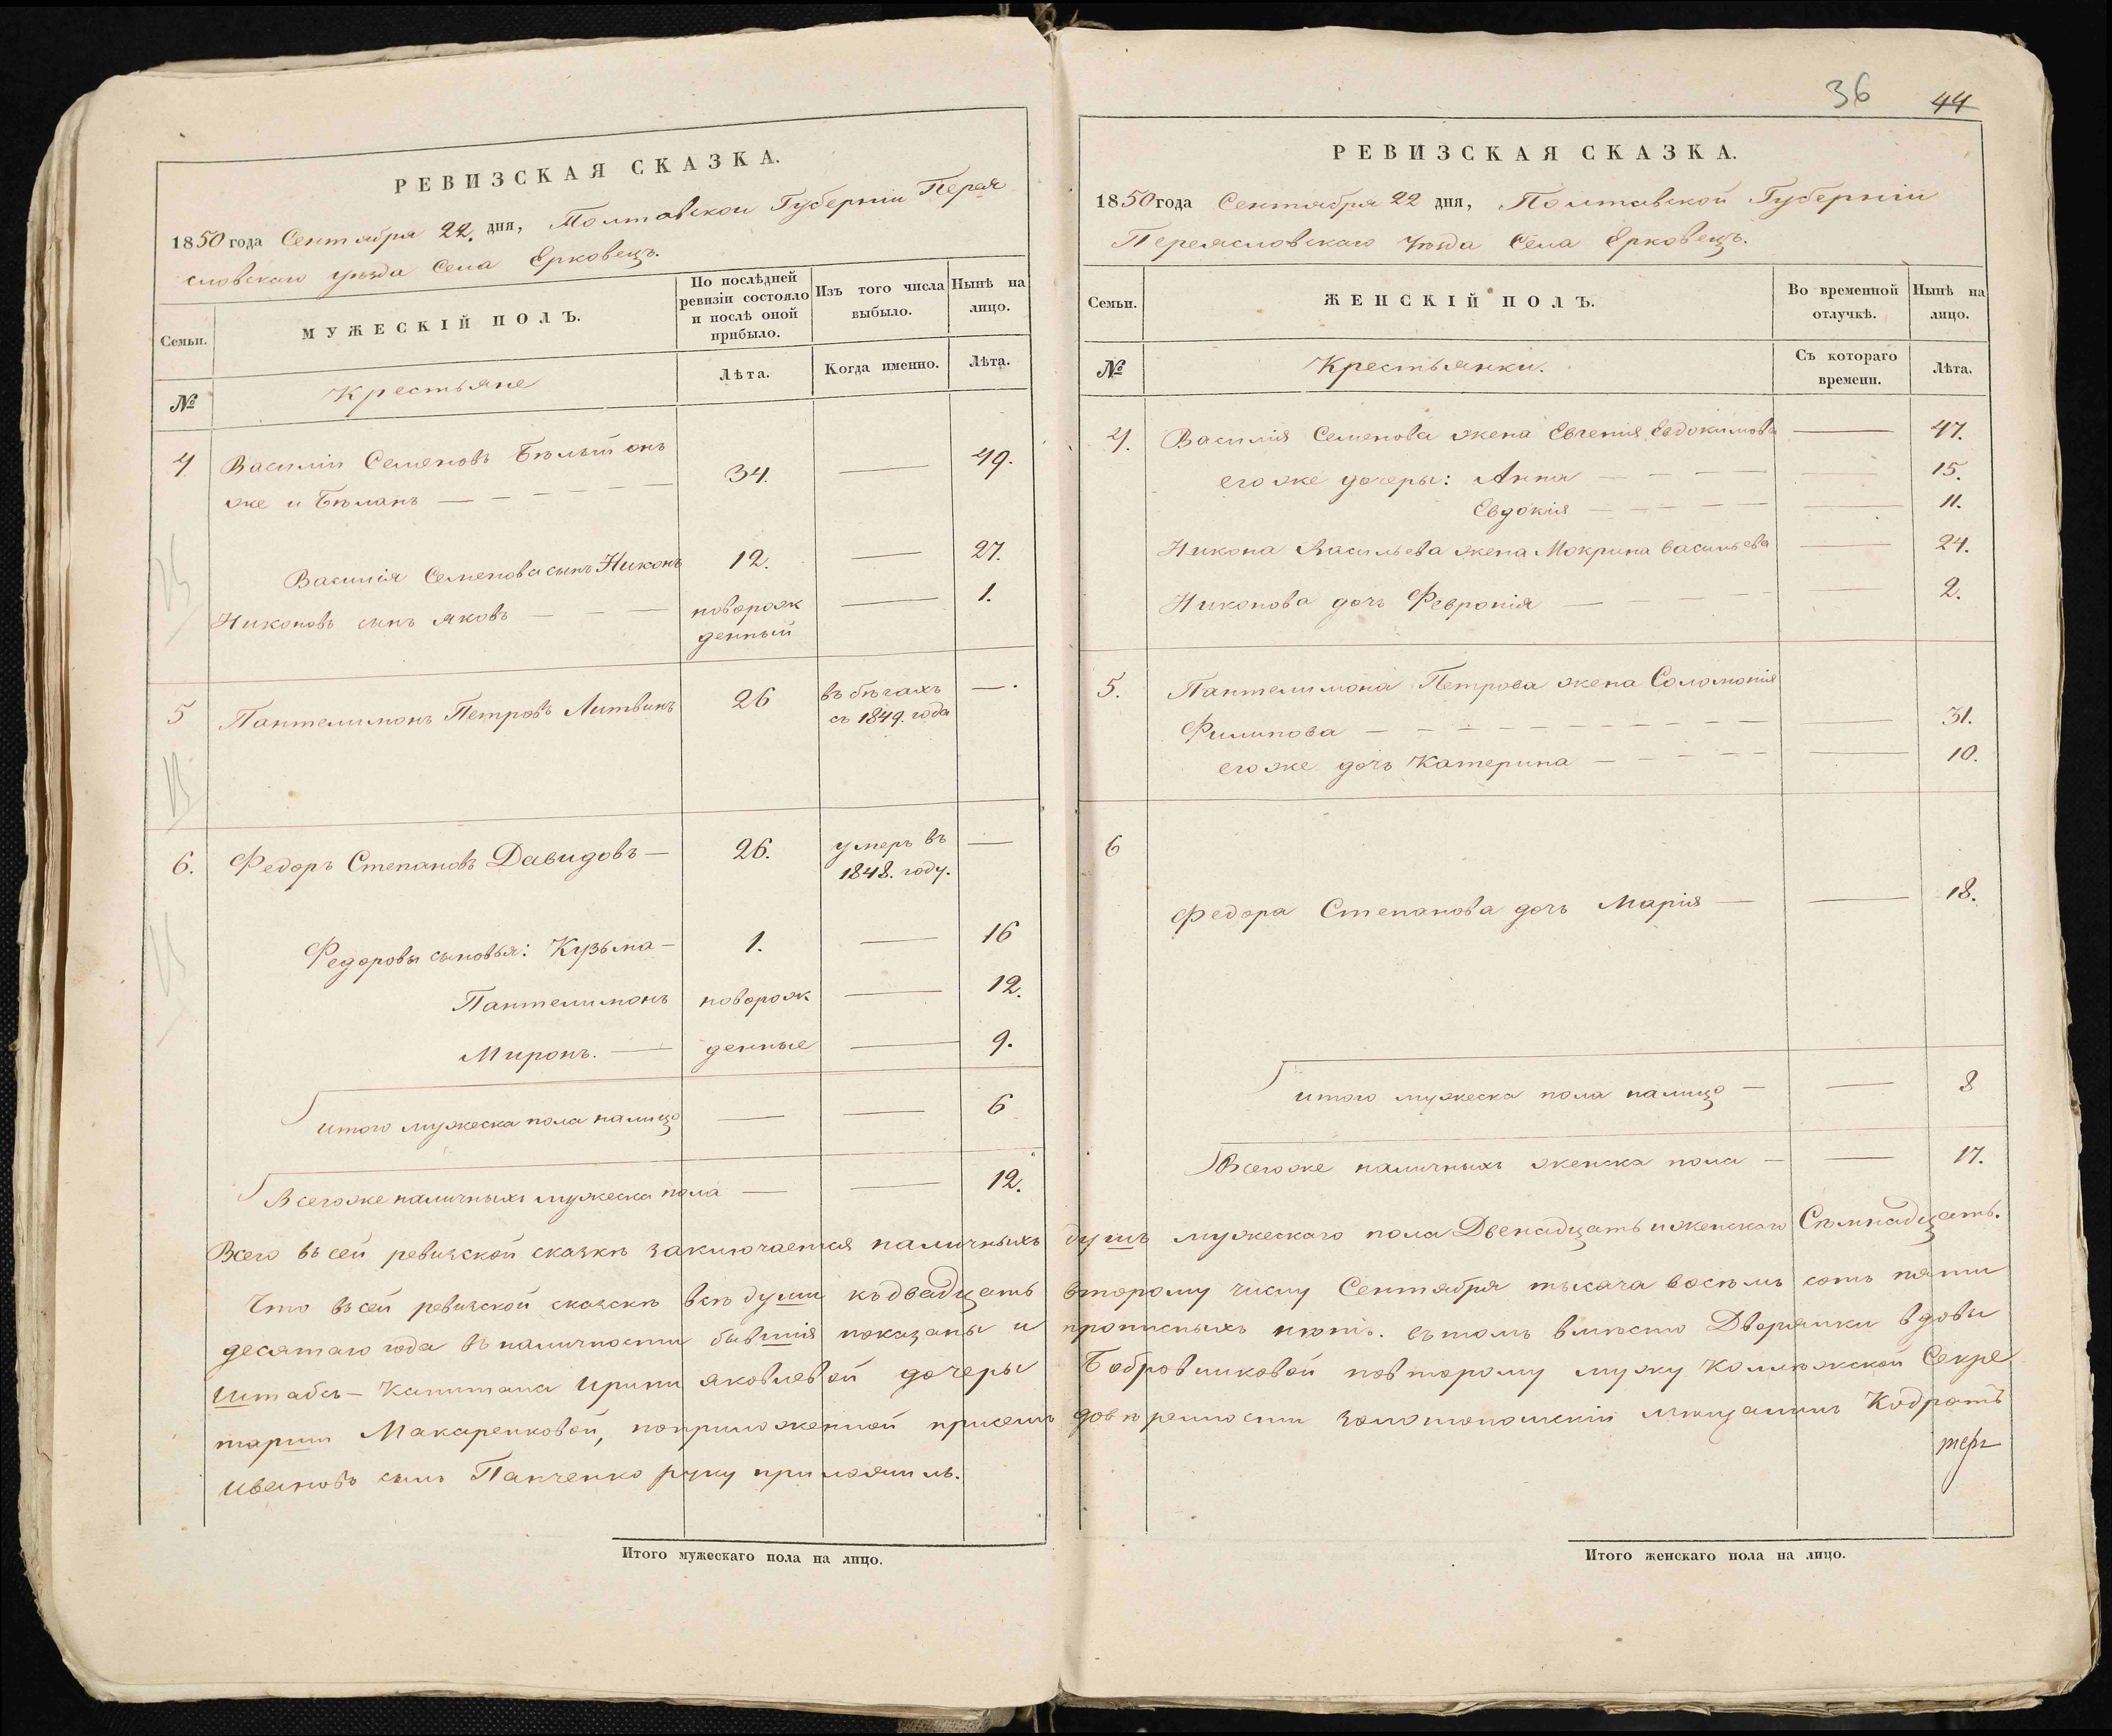 РЕВИЗСКАЯ СКАЗКА.
1850 года Сентября 22. дня, Полтавской Губерніи Перея
словскаго уѣзда Села Ерковецъ.
Семьи.
МУЖЕСКІЙ ПОЛЪ.
По послѣдней ревизіи состояло и послѣ оной прибыло.
Изъ того числа выбыло.
Нынѣ на лицо.
№
Крестьяне
Лѣта.
Когда именно.
Лѣта.
4 Василій Семеновъ Бѣлый онъ
же и Бѣланъ — 34. — 49.
Василія Семенова сынъ Никонъ 12. — 27.
Никоновъ сынъ Яковъ — новорож
денный — 1.
5 Пантелимонъ Петровъ Литвинъ 26 въ бѣгахъ
съ 1849. года —.
6. Федоръ Степановъ Давидовъ — 26. умеръ въ
1848. году. —
Федоровы сыновья: Кузьма — 1. — 16
Пантелимонъ новорож — 12.
Миронъ. — денные — 9.
итого мужеска пола налицо — — 6
Всегоже наличныхъ мужеска пола — — 12.
36 44
РЕВИЗСКАЯ СКАЗКА.
1850 года Сентября 22 дня, Полтавской Губерніи
Переясловскаго Уѣзда Села Ерковецъ.
Семьи.
ЖЕНСКІЙ ПОЛЪ.
Во временной отлучкѣ.
Нынѣ на лицо.
№
Крестьянки.
Съ котораго времени.
Лѣта.
4. Василія Семенова жена Евгенія Евдокимова — 47.
его же дочеры: Анна — — 15.
Евдокія — — 11.
Никона Васильева жена Мокрина Васильева — 24.
Никонова дочь Февронія — — 2.
5. Пантелимона Петрова жена Соломонія
Филипова — — 31.
его же дочь Катерина — — 10.
6
Федора Степанова дочь Марія — — 18.
итого мужеска пола налицо — — 8
Всегоже наличныхъ женска пола — — 17.
Всего въ сей ревизской сказкѣ заключается наличныхъ душъ мужескаго пола Двенадцать и женскаго Сѣмнадцать.
Что въ сей ревизской сказскѣ всѣ души къ двадцать второму числу Сентября тысяча восѣмь сотъ пяти
десятаго года въ наличности бывшія показаны и прописныхъ нѣтъ. въ томъ вмѣсто Дворянки вдовы
Штабсъ-Капитана Ирины Яковлевой дочеры Бобровниковой повторому мужу Коллѣжской Секре
тарши Макаренковой, поприложенной присемъ довѣренности золотоношскій мѣщанинъ Кодратъ
Ивановъ сынъ Панченко руку приложилъ.
Итого мужескаго пола на лицо.
Итого женскаго пола на лицо.